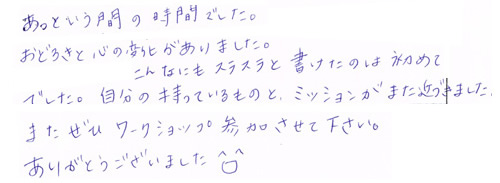 あっという間の時間でした。
おどろきと心の変化がありました。
こんなにもスラスラと書けたのは初めて
でした。自分の持っているものと、ミッションがまた近づきました。
またぜひワークショップ参加させて下さい。
ありがとうございました